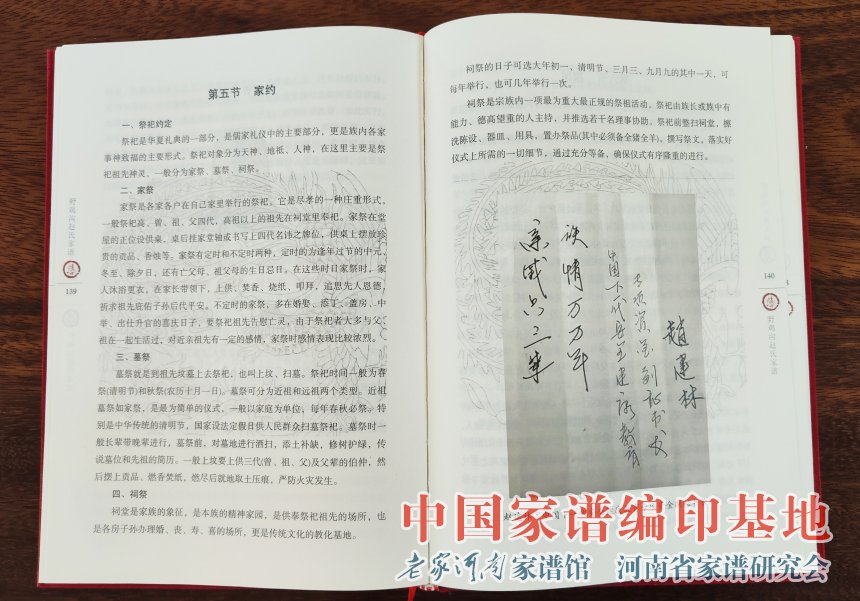 第五节 家约
一、祭祀约定
祭祀是华夏礼典的一部分，是儒家礼仪中的主要部分，更是族内各家
事神致福的主要形式。祭祀对象分为天神、地祇、人神，在这里主要是祭
祀祖先神灵。一般分为家祭、墓祭、祠祭。
二、家祭
家祭是各家各户在自己家里举行的祭祀。它是尽孝的一种庄重形式，
一般祭祀高、曾、祖、父四代，高祖以上的祖先在祠堂里奉祀。家祭在堂
屋的正位设供桌，桌后挂家堂轴或书写上四代名讳之牌位，供桌上摆放珍
贵的贡品、香烛等。家祭有定时和不定时两种，定时的为逢年过节的中元、
冬至、除夕日，还有亡父母、祖父母的生日忌日。在这些时日家祭时，家
人沐浴更衣，在家长带领下，上供、焚香、烧纸、叩拜，追思先人恩德，
祈求祖先庇佑子孙后代平安。不定时的家祭，多在婚娶、添丁、盖房、中
举、出仕升官的喜庆日子，要祭祀祖先告慰亡灵，由于祭祀者大多与父、
祖在一起生活过，对近亲祖先有一定的感情，家祭时感情表现比较浓烈。
三、墓祭
墓祭就是到祖先坟墓上去祭祀，也叫上坟、扫墓。祭祀时间一般为春
祭(清明节)和秋祭(农历十月一日)。墓祭可分为近祖和远祖两个类型。近祖
墓祭如家祭，是最为简单的仪式，一般以家庭为单位，每年春秋必祭。特
别是中华传统的清明节，国家设法定假日供人民群众扫墓祭祀。墓祭时一
般长辈带晚辈进行，墓祭前，对墓地进行洒扫，添土补缺，修树护绿，传
说墓位和先祖的简历。一般上坟要上供三代(曾、祖、父)及父辈的伯仲，然
后摆上贡品、燃香焚纸，燃尽后就地取土压痕，严防火灾发生。
四、祠祭
祠堂是家族的象征，是本族的精神家园，是供奉祭祀祖先的场所，也
是各房子孙办理婚、丧、寿、喜的场所，更是传统文化的教化基地。
野鸡岗赵氏家谱
139
祠祭的日子可选大年初一、清明节、三月三、九月九的其中一天，可
每年举行，也可几年举行一次。
祠祭是宗族内一项最为重大最正规的祭祖活动，祭祀由族长或族中有
能力、德高望重的人主持，并推选若干名理事协助，祭祀前整扫祠堂，擦
洗陈设、器皿、用具，置办祭品(其中必须备全猪全羊)，撰写祭文，落实好
仪式上所需的一切细节，通过充分等备，确保仪式有序隆重的进行。
亲戚只三辈
族情万万年
中国下一代
赵建林
140
野鸡岗赵氏家谱
中国家谱编印基地
老家河南家谱馆 河南省家谱研究会